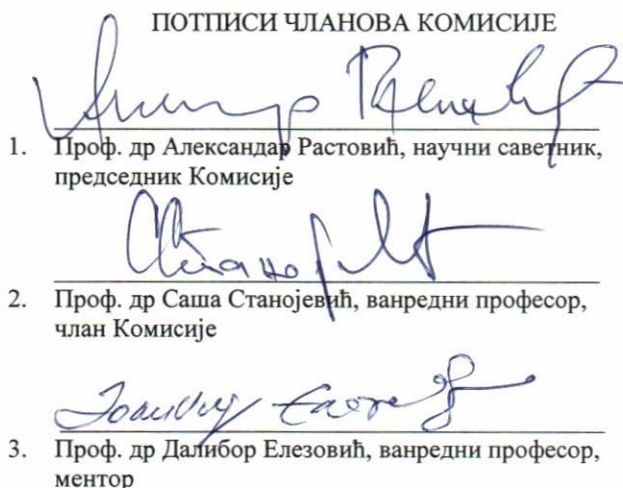 ПОТПИСИ ЧЛАНОВА КОМИСИЈЕ
1. Проф. др Александар Растовић, научни саветник,
председник Комисије
2. Проф. др Саша Станојевић, ванредни професор,
члан Комисије
3. Проф. др Далибор Елезовић, ванредни професор,
ментор